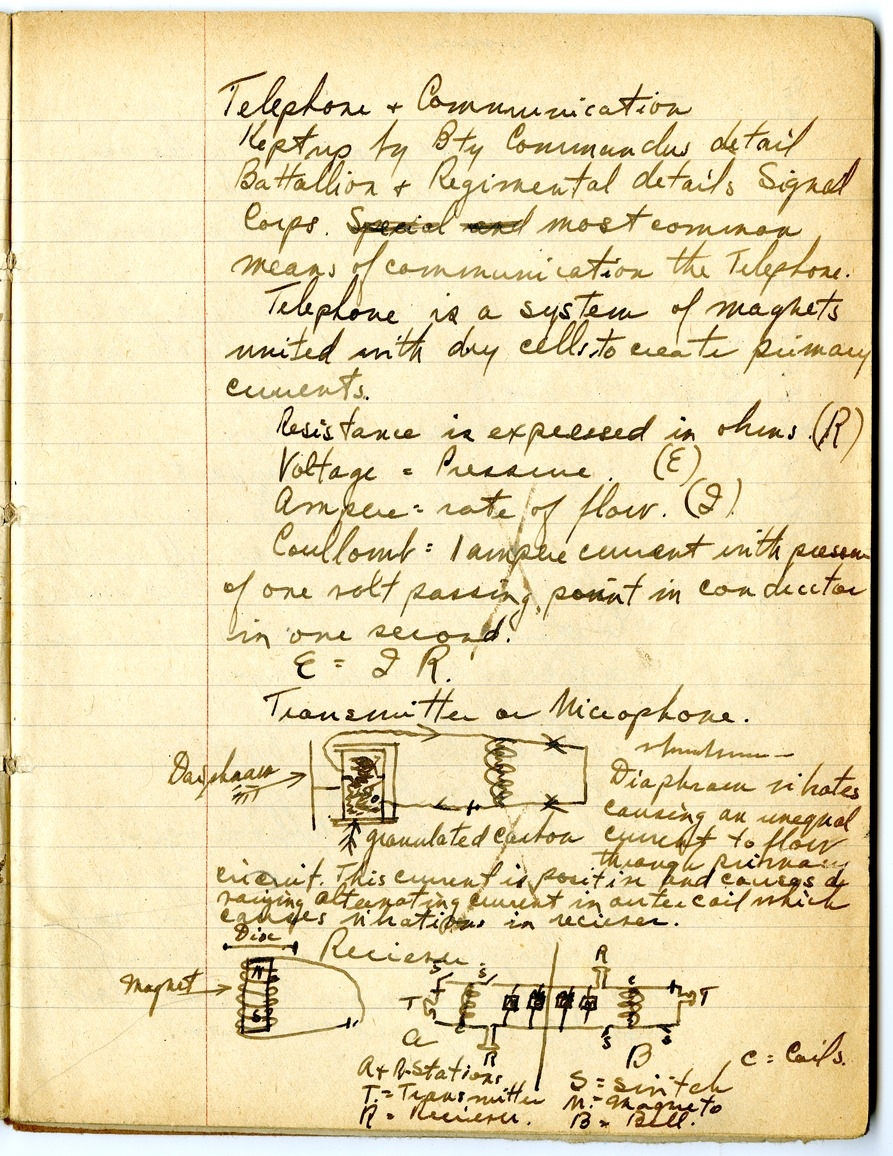 Telephone + Communication
Kept up by Bty Commandus detail
Battallion + Regimental details Signal
Corps. Special and most common
means of communication the Telephone.
Telephone is a system of magnets
united with dry cells to create primary
currents.
Resistance is expressed in ohms. (R)
Voltage = Pressure. (E)
Ampere = rate of flow. (I)
Coullomb = 1 ampere current with pressure
of one volt passing point in conductor
in one second.
E = I R.
Transmitter or Microphone.
Diaphram vibrates
causing an unequal
granulated carbon current to flow
through primary
circuit. This current is positive and causes a
varying alternating current in outer coil which
causes vibrations in reciever.
Disc
Reciever.
Magnet
N
S
S S R
T T
C C
R S S
a B C = Coils.
A + B Stations S = Switch
T. = Transmitter M. = Magneto
R = Reciever. B = Bell.